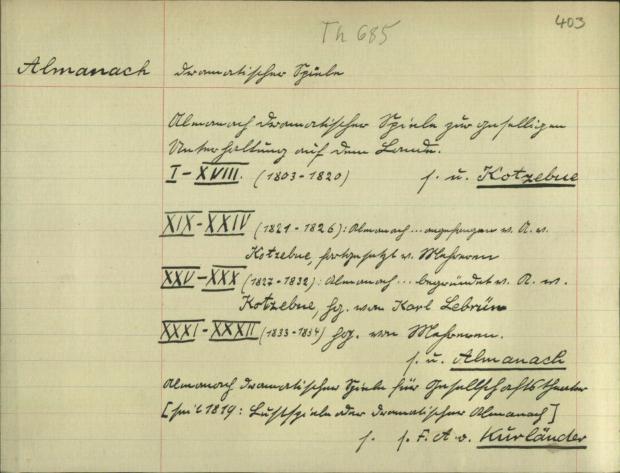 Th 685
403
Almanach dramatischer Spiele
Almanach dramatischer Spiele zur geselligen
Unterhaltung auf dem Lande.
I-XVIII. (1803-1820) s. u. Kotzebue
XIX-XXIV (1821-1826): Almanach ... angefangen v. A. v.
Kotzebue, fortgesetzt v. Mehreren
XXV-XXX (1827-1832): Almanach ... begründet v. A. v.
Kotzebue, hg. von Karl Lebrün
XXXI-XXXII (1833-1834) hg. von Mehreren.
s. u. Almanach
Almanach dramatischer Spiele für Gesellschaftstheater
[seit 1819: Lustspiele oder dramatischer Almanach]
s. s. F. A. v. Kurländer